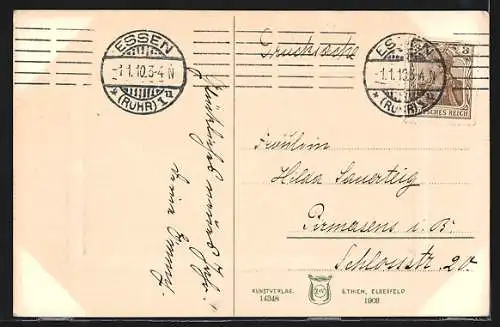 ESSEN
-1.1.10.3-4 N
* (RUHR) 1 u
Drucksache
ESSEN
-1.1.10.3-4 N
* (RUHR) 1 u
3
DEUTSCHES REICH
Glückliches neues Jahr.
Deine Emmy.
Fräulein
Hilda Sauerteig
Pirmasens i. B.
Schlossstr. 20.
KUNSTVERLAG.
14348
S.THIEN, ELBERFELD
1908